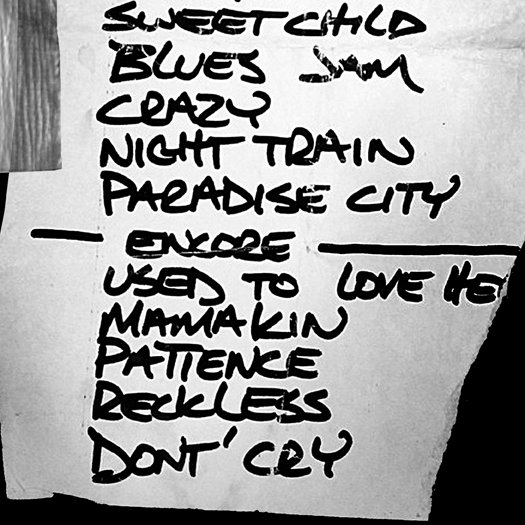 SWEET CHILD
BLUES JAM
CRAZY
NIGHT TRAIN
PARADISE CITY
— ENCORE —
USED TO LOVE HER
MAMA KIN
PATIENCE
RECKLESS
DONT' CRY